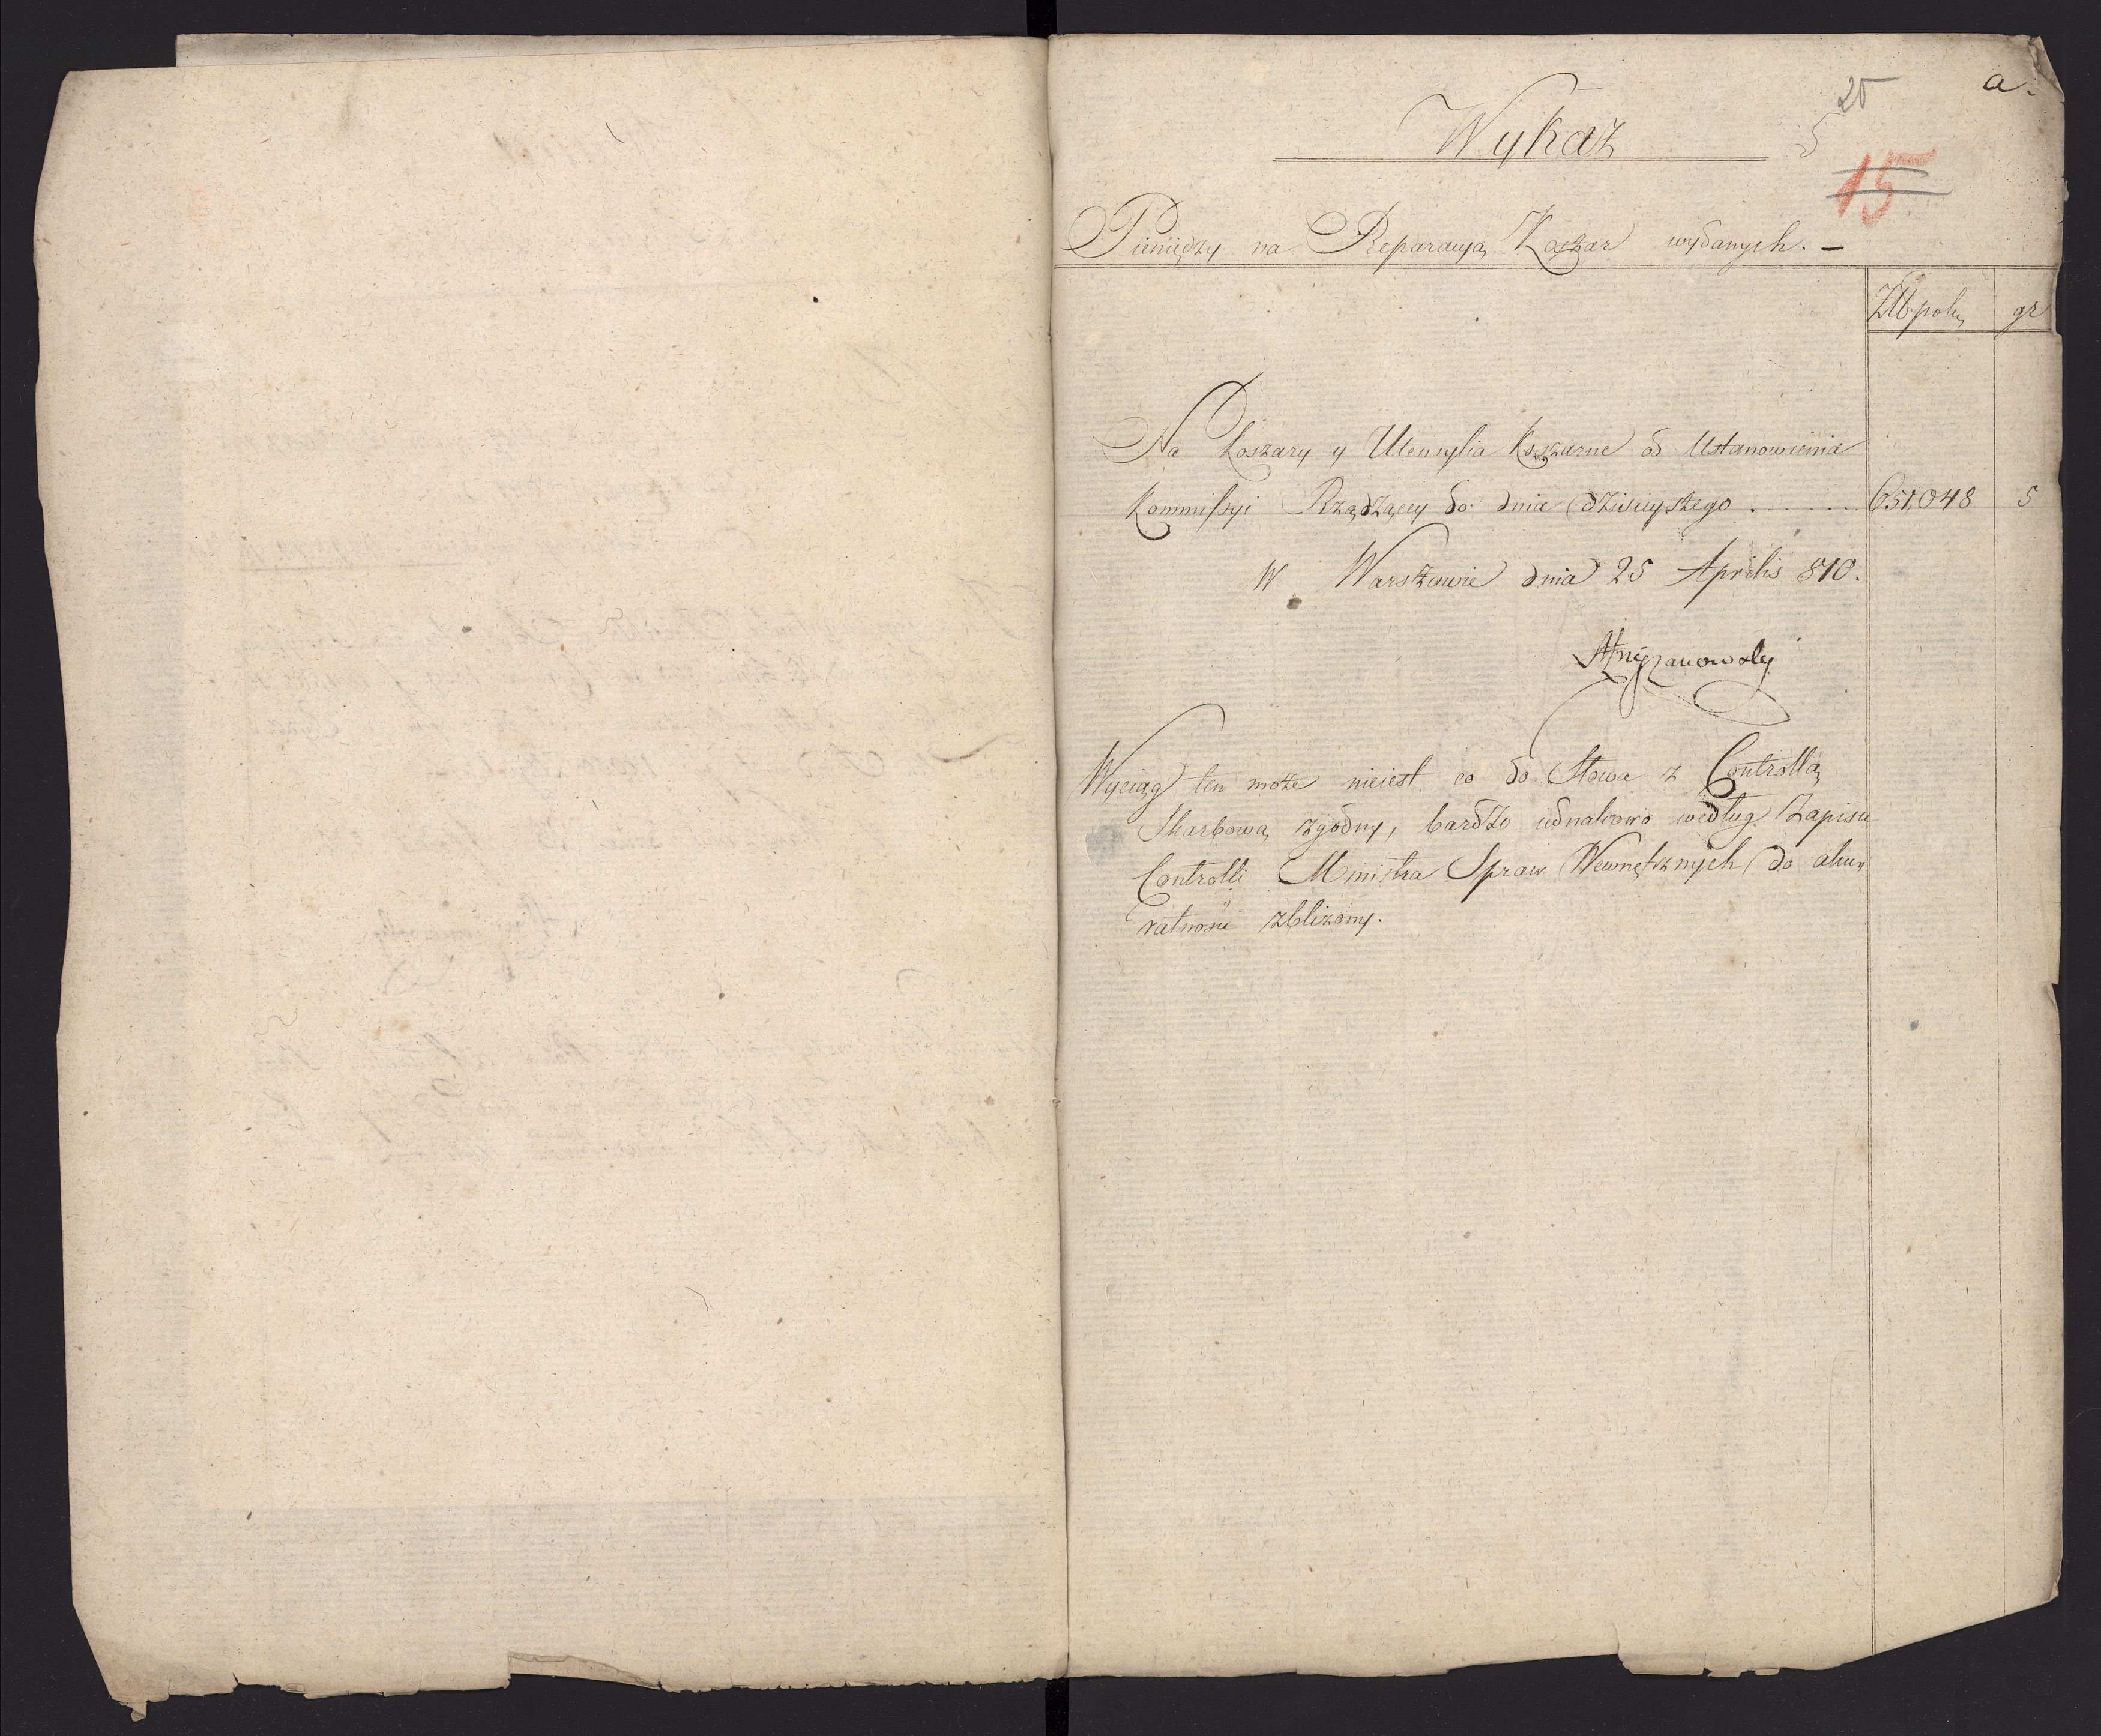 a.
25
5
Wykaz
15
Pieniędzy na Reparacyą Koszar wydanych. –
Złł pols, gr
Na Koszary y Utensylia Koszarne od Ustanowienia
Kommissyi Rządzącey do dnia dzisieyszego . . . . . . 651,048 5
w Warszawie dnia 25 Aprilis 810.
Wyciąg ten może nieiest co do Słowa z Controllą
Skarbową zgodny, bardzo iednakowo według Zapisu
Controlli Ministra Spraw Wewnętrznych do aku„
ratności zbliżony.